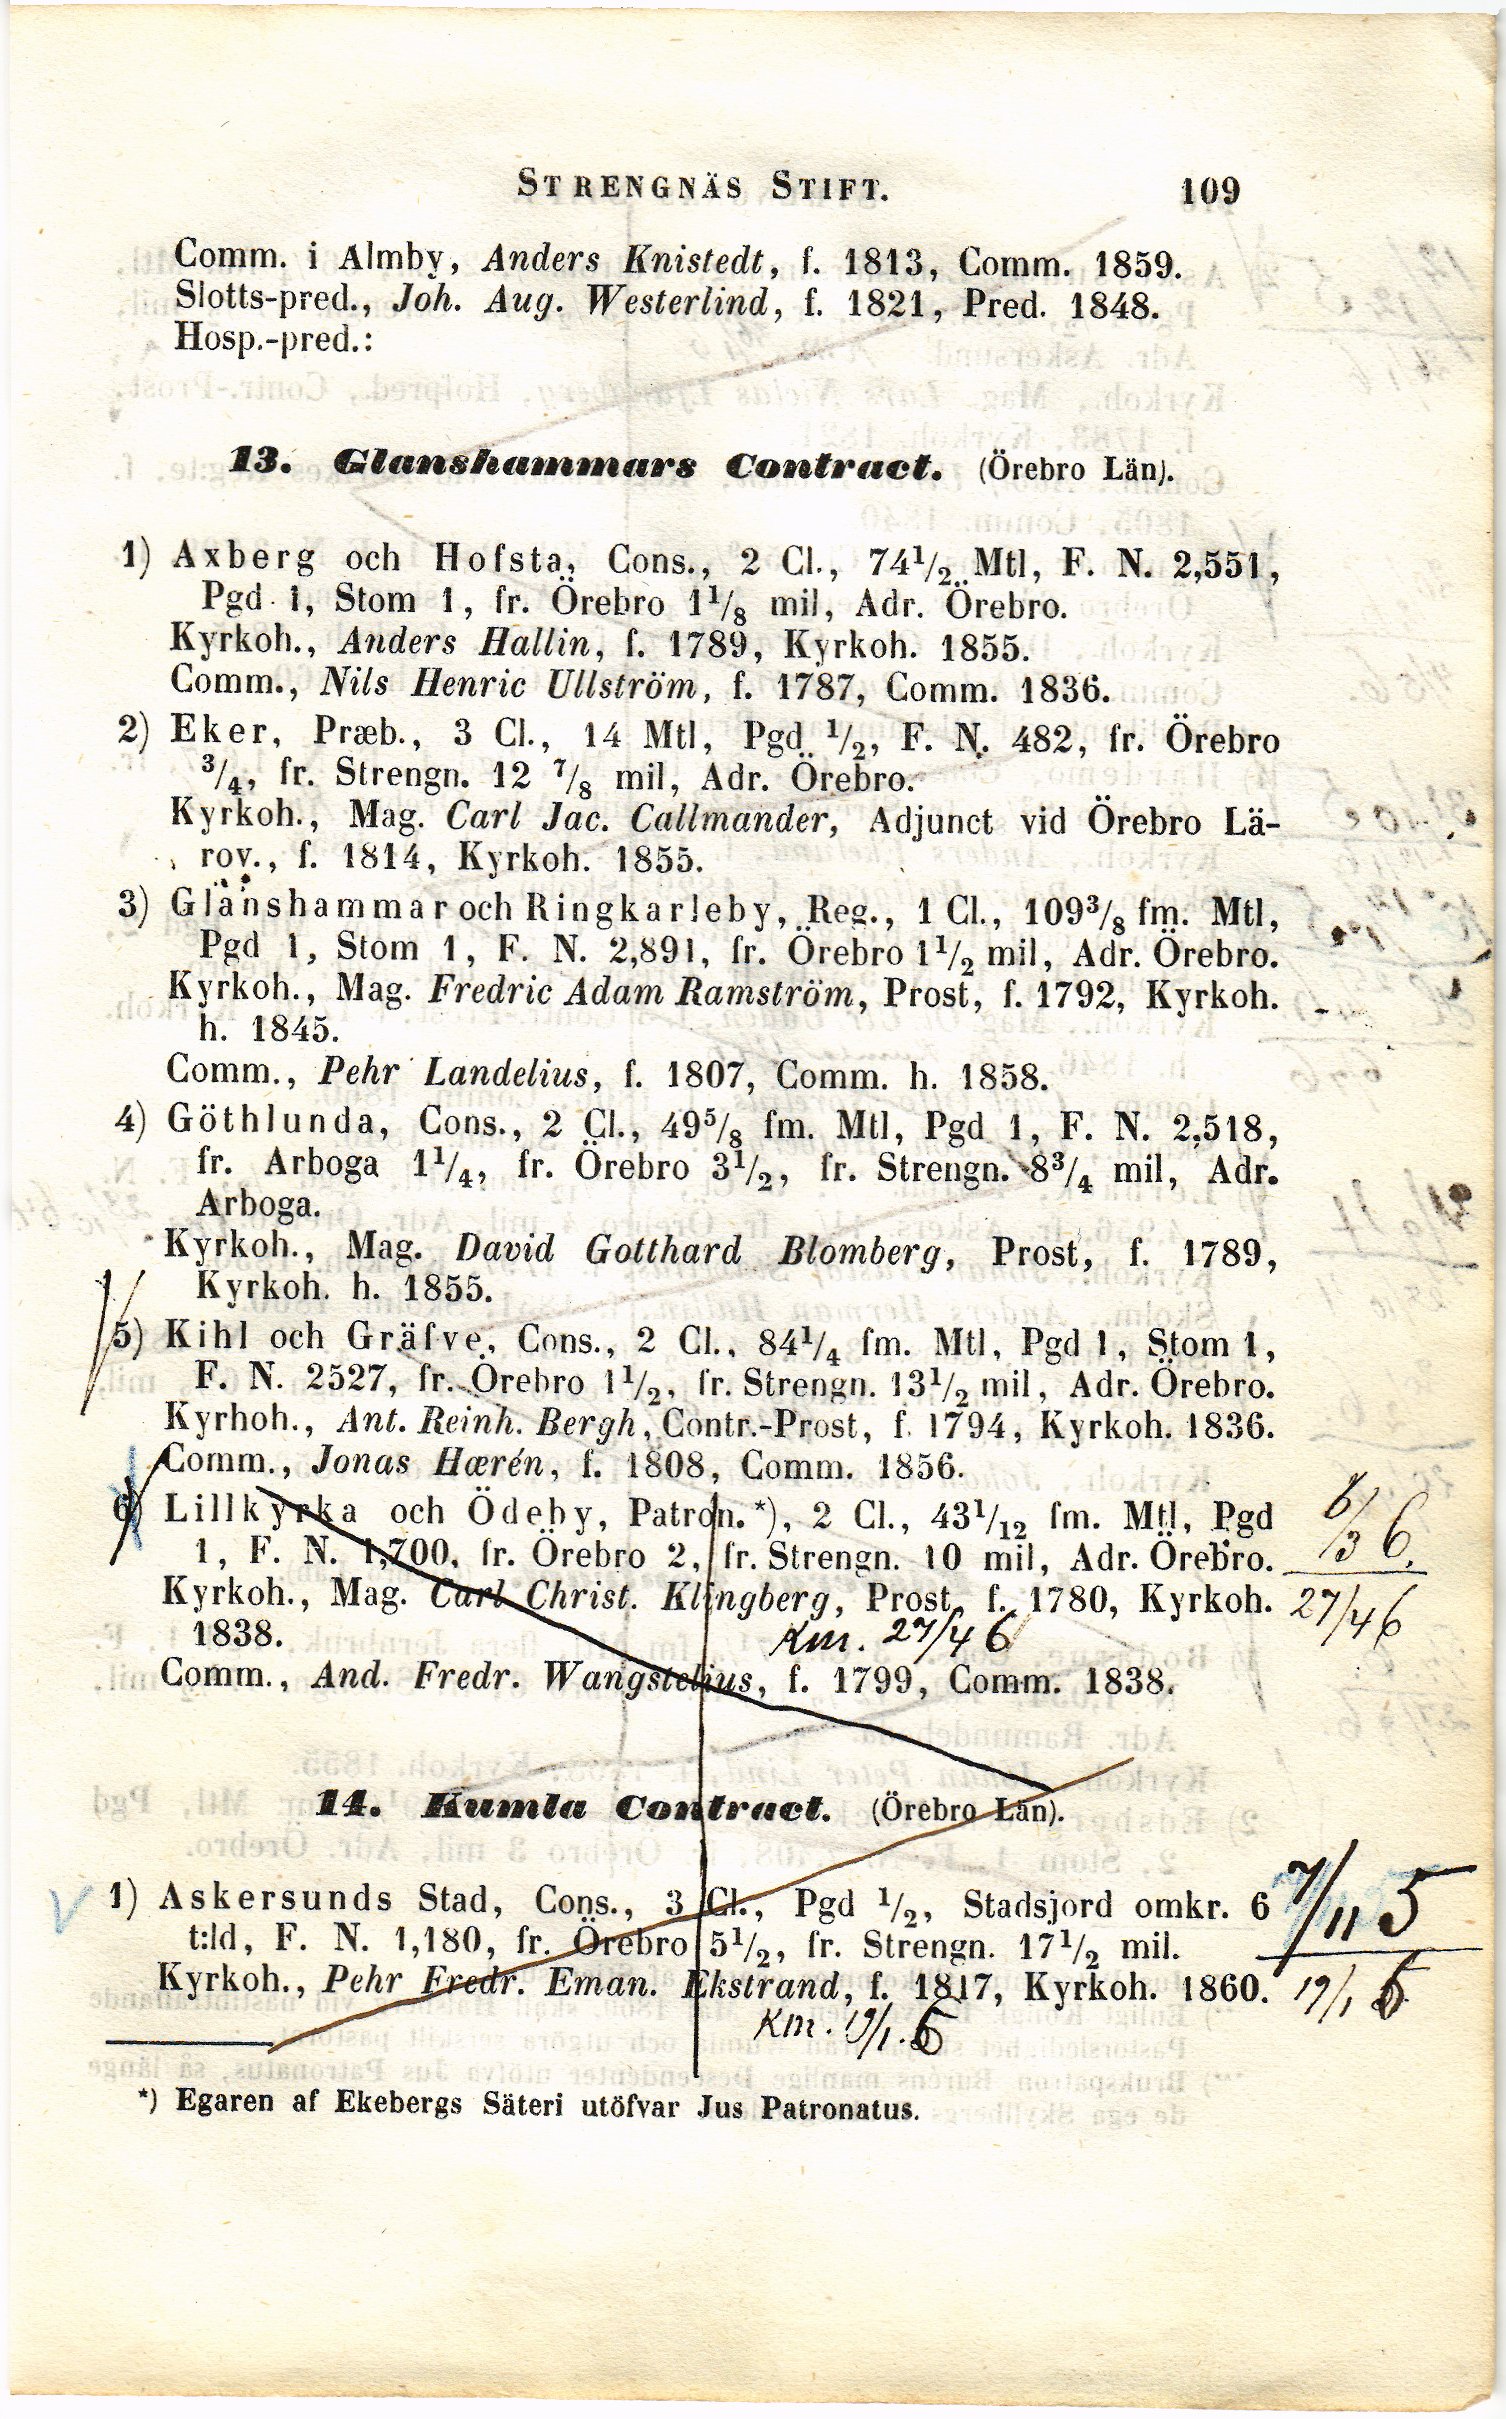 STRENGNÄS STIFT. 109
Comm. i Almby, Anders Knistedt, f. 1813, Comm. 1859.
Slotts-pred., Joh. Aug. Westerlind, f. 1821, Pred. 1848.
Hosp.-pred.:
13. Glanshammars Contract. (Örebro Län).
1) Axberg och Hofsta, Cons., 2 Cl., 74 1/2 Mtl, F. N. 2,551,
Pgd 1, Stom 1, fr. Örebro 1 1/8 mil, Adr. Örebro.
Kyrkoh., Anders Hallin, f. 1789, Kyrkoh. 1855.
Comm., Nils Henric Ullström, f. 1787, Comm. 1836.
2) Eker, Præb., 3 Cl., 14 Mtl, Pgd 1/2, F. N. 482, fr. Örebro
3/4, fr. Strengn. 12 7/8 mil, Adr. Örebro.
Kyrkoh., Mag. Carl Jac. Callmander, Adjunct vid Örebro Lä-
rov., f. 1814, Kyrkoh. 1855.
3) Glanshammar och Ringkarleby, Reg., 1 Cl., 109 3/8 fm. Mtl,
Pgd 1, Stom 1, F. N. 2,891, fr. Örebro 1 1/2 mil, Adr. Örebro.
Kyrkoh., Mag. Fredric Adam Ramström, Prost, f. 1792, Kyrkoh.
h. 1845.
Comm., Pehr Landelius, f. 1807, Comm. h. 1858.
4) Göthlunda, Cons., 2 Cl., 49 5/8 fm. Mtl, Pgd 1, F. N. 2,518,
fr. Arboga 1 1/4, fr. Örebro 3 1/2, fr. Strengn. 8 3/4 mil, Adr.
Arboga.
Kyrkoh., Mag. David Gotthard Blomberg, Prost, f. 1789,
Kyrkoh. h. 1855.
5) Kihl och Gräfve, Cons., 2 Cl., 84 1/4 fm. Mtl, Pgd 1, Stom 1,
F. N. 2527, fr. Örebro 1 1/2, fr. Strengn. 13 1/2 mil, Adr. Örebro.
Kyrhoh., Ant. Reinh. Bergh, Contr.-Prost, f. 1794, Kyrkoh. 1836.
Comm., Jonas Hærén, f. 1808, Comm. 1856.
6) Lillkyrka och Ödeby, Patron.*), 2 Cl., 43 1/12 fm. Mtl, Pgd
6/3 6.
1, F. N. 1,700, fr. Örebro 2, fr. Strengn. 10 mil, Adr. Örebro.
Kyrkoh., Mag. Carl Christ. Klingberg, Prost, f. 1780, Kyrkoh.
27/4 6
1838.
Km. 27/4 6
Comm., And. Fredr. Wangstelius, f. 1799, Comm. 1838.
14. Kumla Contract. (Örebro Län).
1) Askersunds Stad, Cons., 3 Cl., Pgd 1/2, Stadsjord omkr. 6
7/11 5
t:ld, F. N. 1,180, fr. Örebro 5 1/2, fr. Strengn. 17 1/2 mil.
Kyrkoh., Pehr Fredr. Eman. Ekstrand, f. 1817, Kyrkoh. 1860.
*) Egaren af Ekebergs Säteri utöfvar Jus Patronatus.